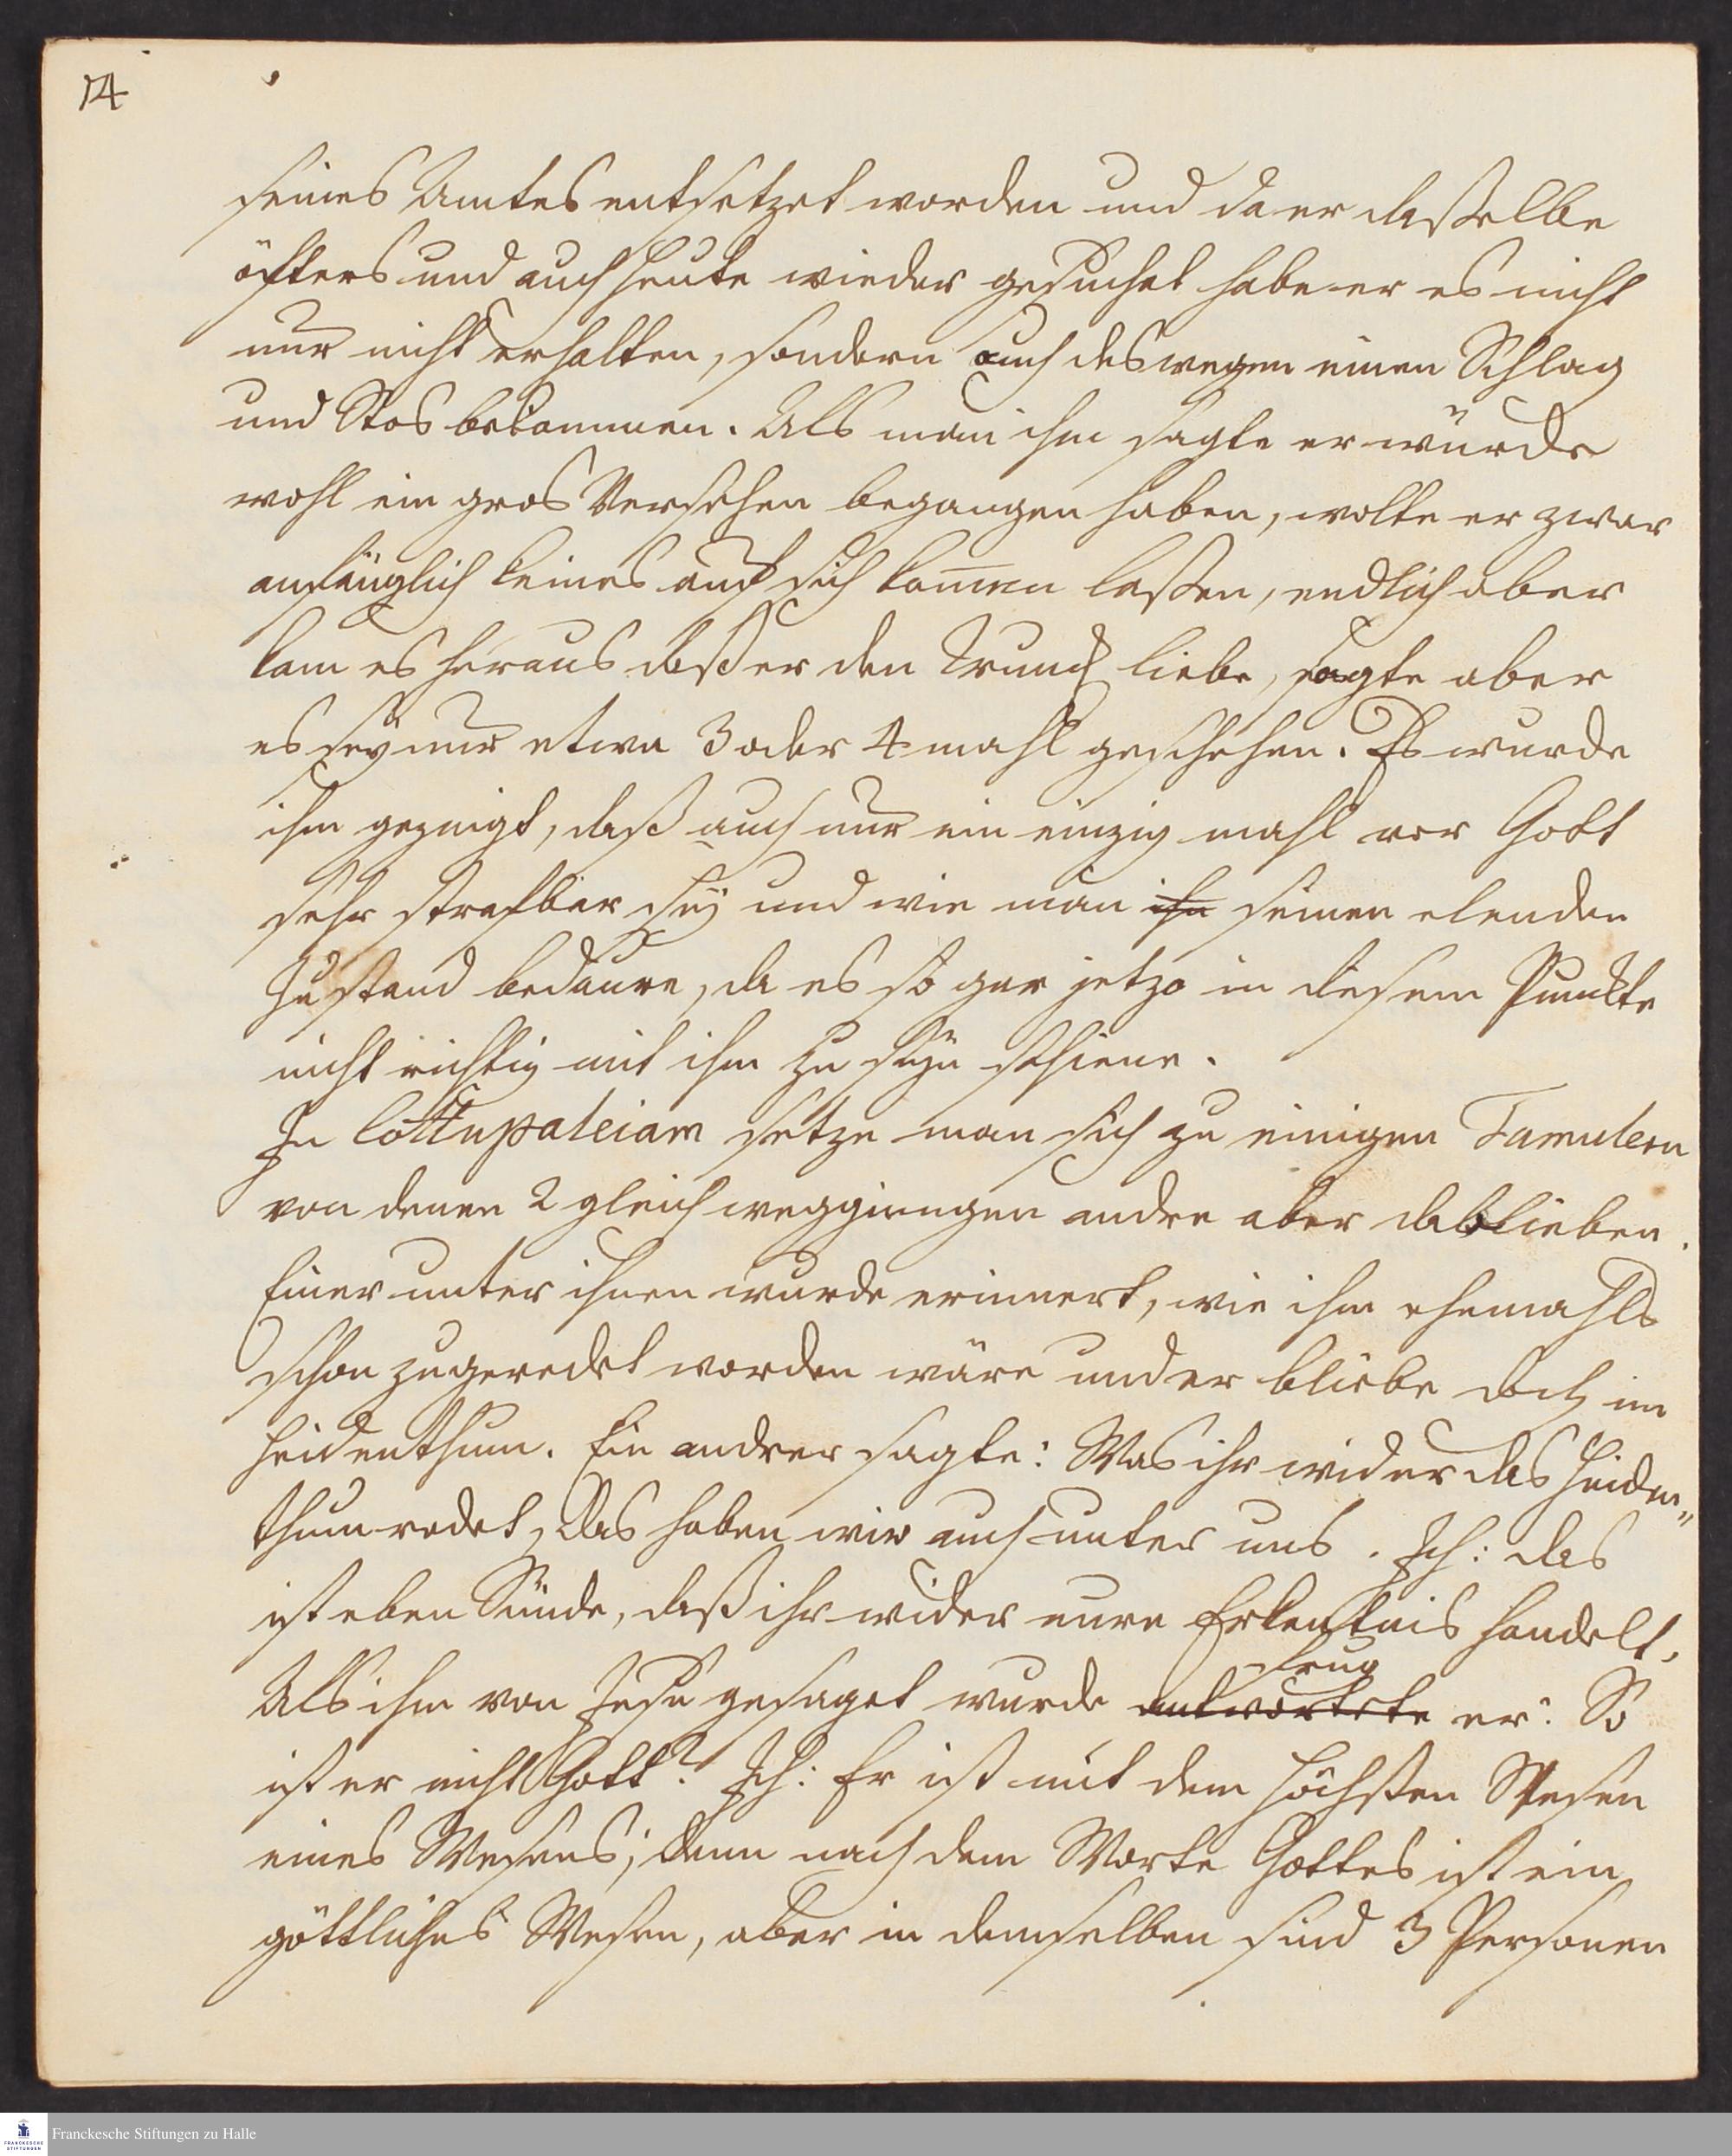 14
seines Amtes entsetzet worden und da er dasselbe
öfters und auch heute wieder gesuchet habe er es nicht
nur nicht erhalten, sondern auch deswegen einen Schlag
und Stos bekommen. Als man ihm sagte er würde
wohl ein gros Versehen begangen haben, wolte er zwar
anfänglich keines auf sich kom̅en laßen, endlich aber
kam es heraus daß er den Trunck liebe, sagte aber
es sey nur etwa 3 oder 4 mahl geschehen. Es wurde
ihm gezeigt, daß auch nur ein einzig mahl vor Gott
sehr strafbar sey und wie man ihn seinen elenden
Zustand bedaure, da es so gar jetzo in diesem Punckte
nicht richtig mit ihm zu seyn schiene.
In Cottupaleiam setze man sich zu einigen Tamulern
von denen 2 gleich weggiengen andre aber dablieben.
Einer unter ihnen wurde erinnert, wie ihm ehemahls
schon zugeredet worden wäre und er bliebe doch im
Heidenthum. Ein andrer sagte: Was ihr wider das Heiden„
thum redet, das haben wir auch unter uns. Ich: das
ist eben Sünde, daß ihr wider eure Erkentnis handelt.
frug
Als ihm von Jesu gesaget wurde antwortete er: So
ist er nicht Gott? Ich: Er ist mit dem höchsten Wesen
eines Wesens; denn nach dem Worte Gottes ist ein
göttliches Wesen, aber in demselben sind 3 Personen
Franckesche Stiftungen zu Halle
FRANCKESCHE
STIFTUNGEN